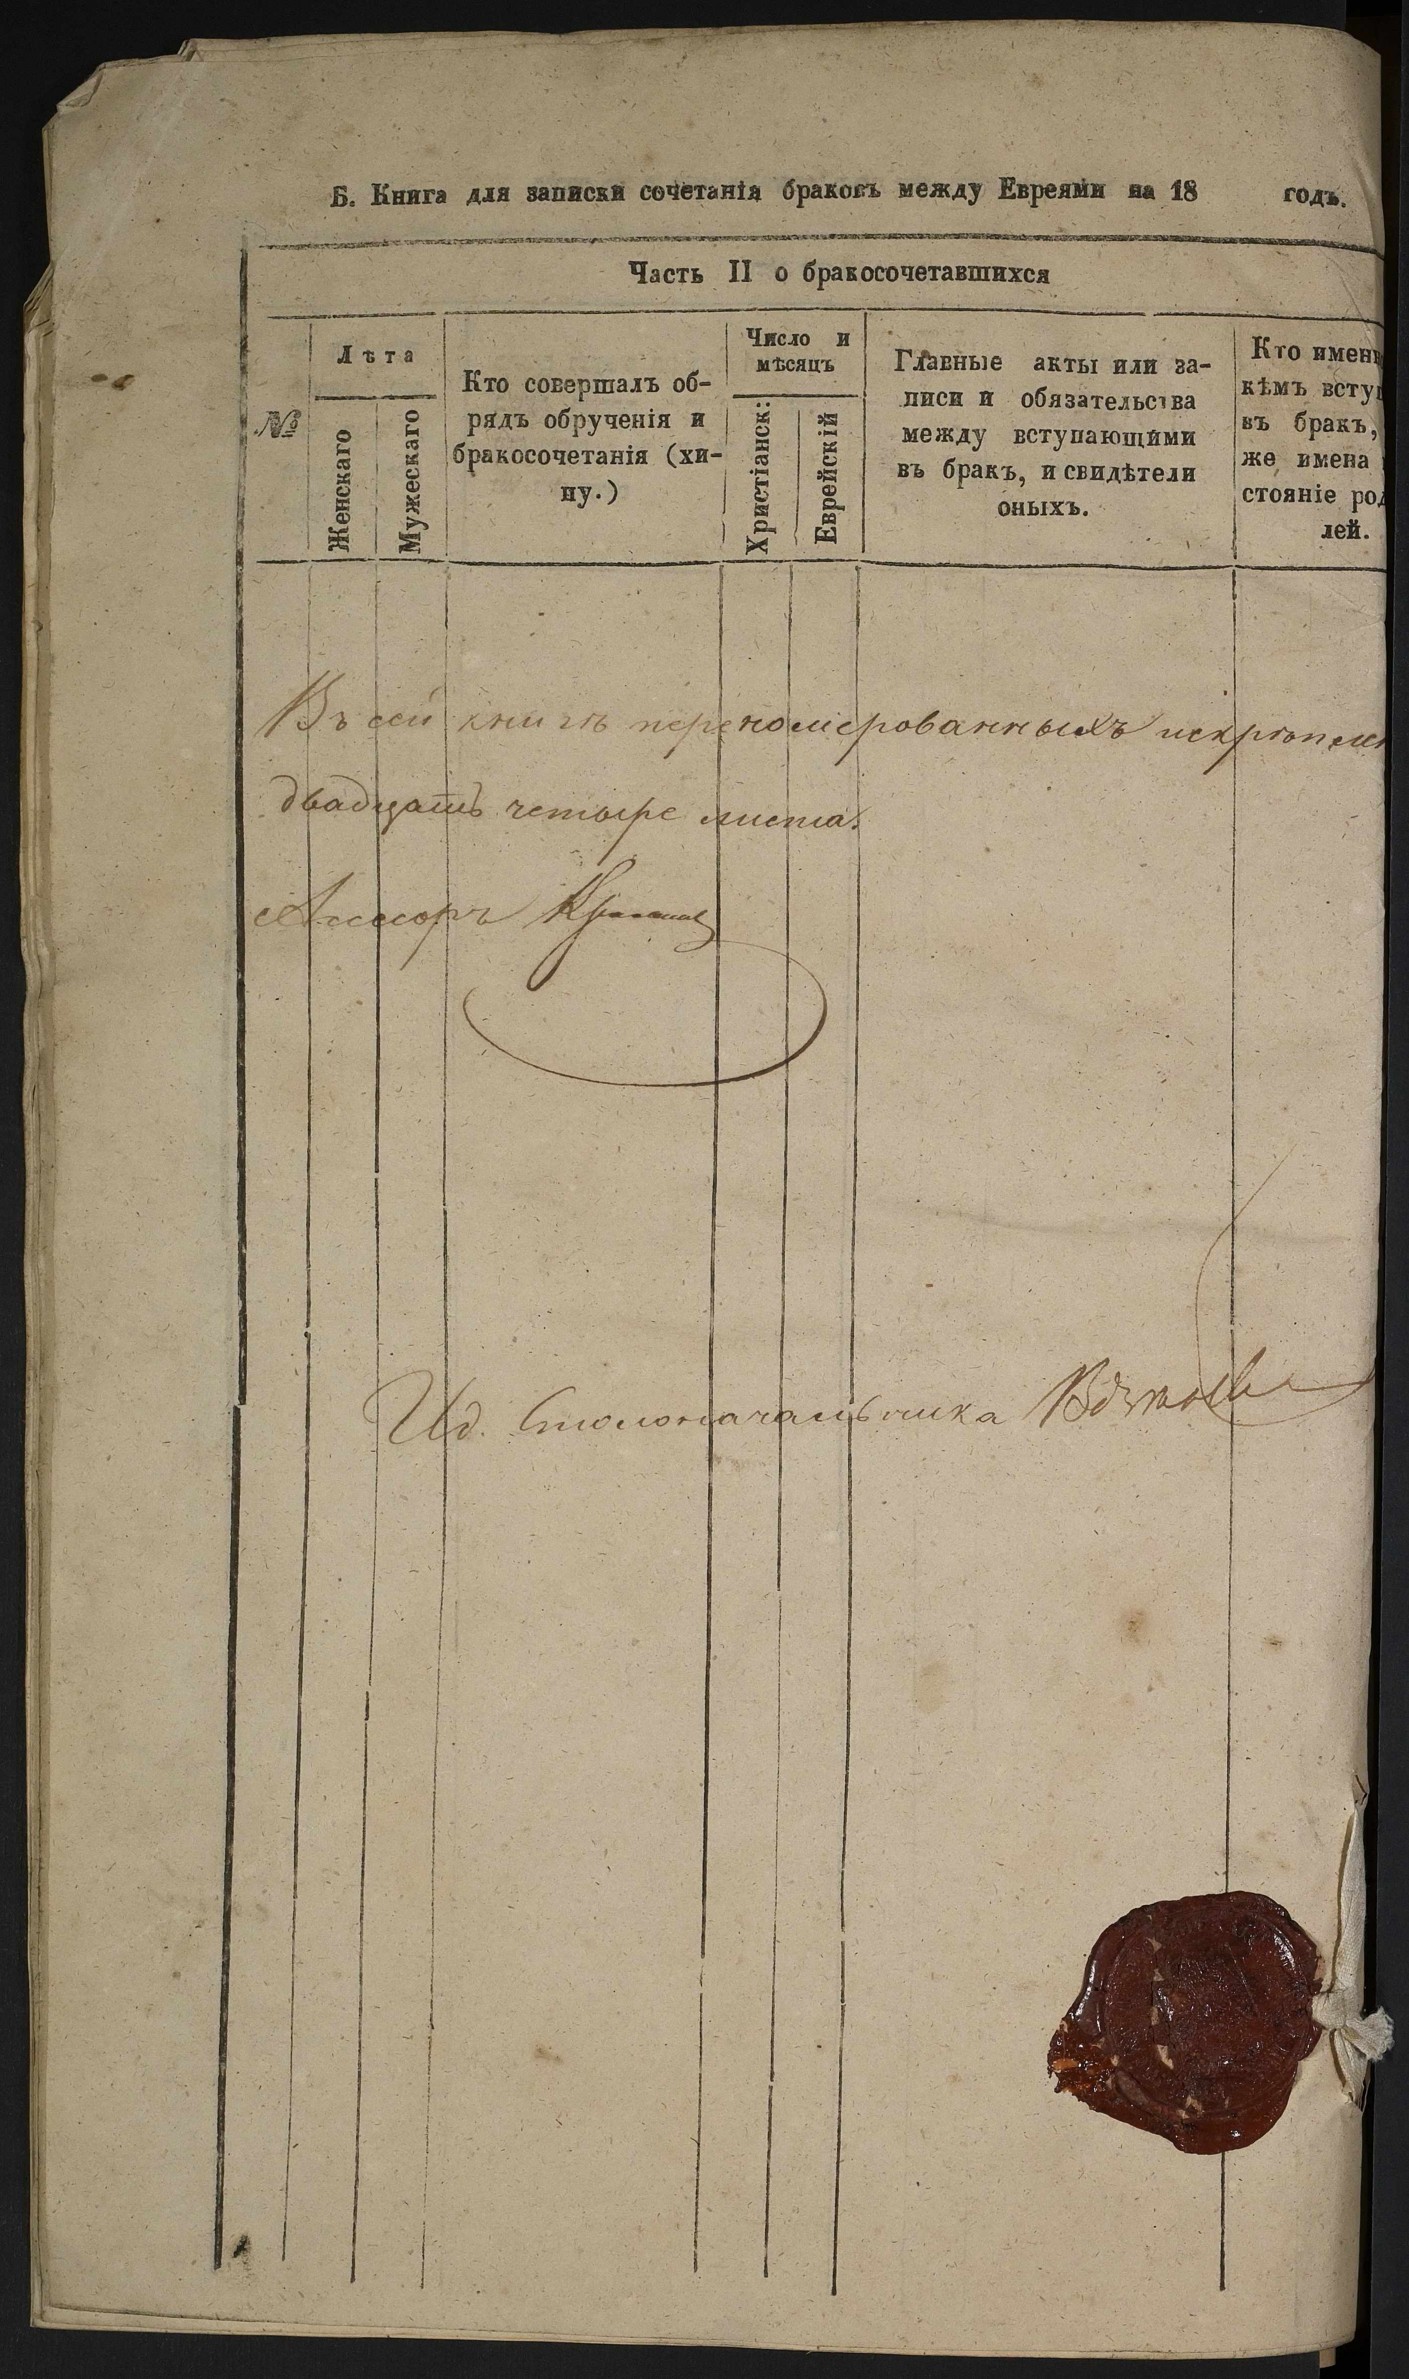 Б. Книга для записки сочетанія браковъ между Евреями на 18 годъ.
Часть II о бракосочетавшихся
№
Лѣта
Женскаго
Мужескаго
Кто совершалъ об-
рядъ обрученія и
бракосочетанія (хи-
пу.)
Число и
мѣсяцъ
Христіанск:
Еврейскій
Главные акты или за-
писи и обязательства
между вступающими
въ бракъ, и свидѣтели
оныхъ.
Кто имен
кѣмъ всту
въ бракъ,
же имена
стояніе род
лей.
Въ сей книгѣ перенomерованныхъ искрѣплен
двадцать четыре листа.
Ассесоръ
Ид. Столоначальника